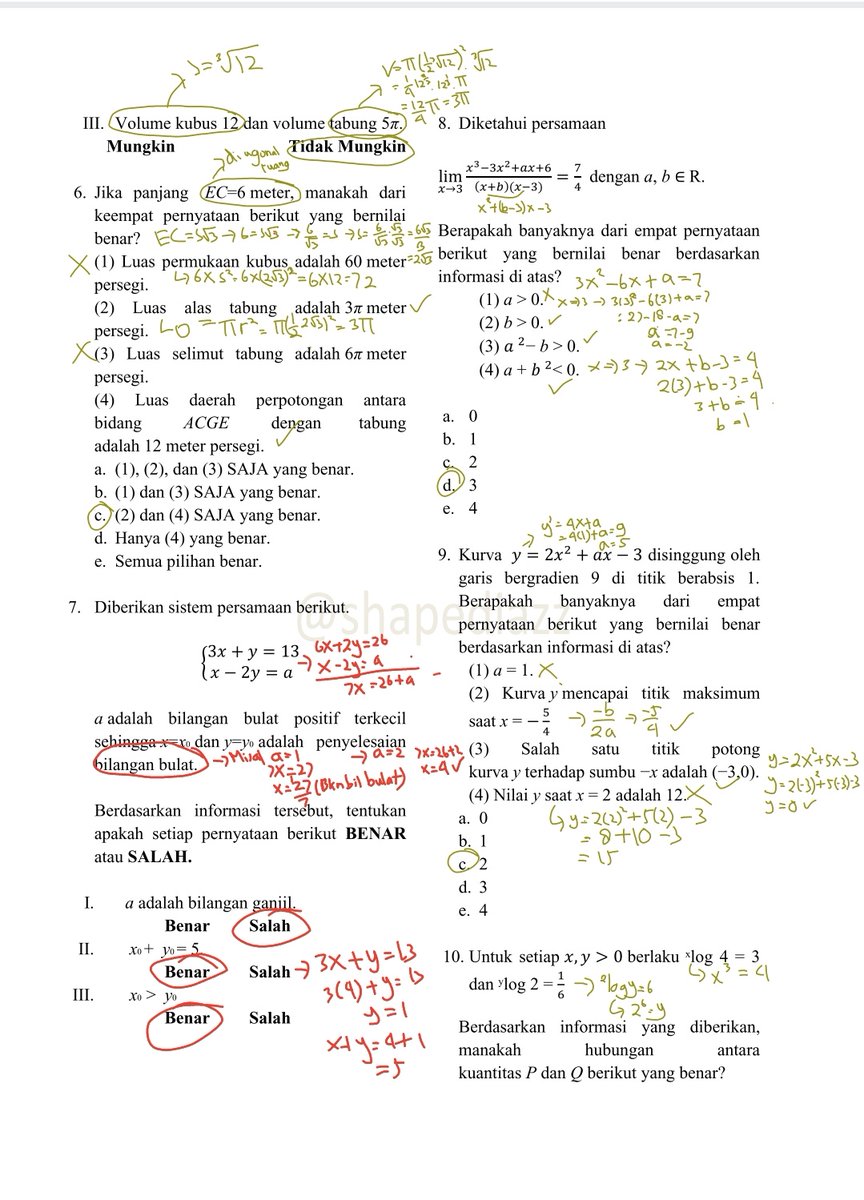 s=³√12
V=π(½³√12)².³√12
=¼12⅔.12⅓.π
=12/4 π=3π
III. Volume kubus 12 dan volume tabung 5π.
Mungkin Tidak Mungkin
diagonal ruang
6. Jika panjang EC=6 meter, manakah dari
keempat pernyataan berikut yang bernilai
benar? EC=s√3→6=s√3→6/√3=s→s=6/√3.√3/√3=6√3/3
=2√3
(1) Luas permukaan kubus adalah 60 meter
persegi. ↳6×s²=6×(2√3)²=6×12=72
(2) Luas alas tabung adalah 3π meter
persegi. ↳O=πr²=π(½2√3)²=3π
(3) Luas selimut tabung adalah 6π meter
persegi.
(4) Luas daerah perpotongan antara
bidang ACGE dengan tabung
adalah 12 meter persegi.
a. (1), (2), dan (3) SAJA yang benar.
b. (1) dan (3) SAJA yang benar.
c. (2) dan (4) SAJA yang benar.
d. Hanya (4) yang benar.
e. Semua pilihan benar.
@shapedjazz
7. Diberikan sistem persamaan berikut.
{3x + y = 13
x − 2y = a
→ 6x+2y=26
x-2y=a
7x=26+a
a adalah bilangan bulat positif terkecil
sehingga x=x₀ dan y=y₀ adalah penyelesaian
bilangan bulat.
→Misal a=1
7x=27
x=27/7 (Bkn bil bulat)
→a=2 7x=26+2
x=4 ✓
Berdasarkan informasi tersebut, tentukan
apakah setiap pernyataan berikut BENAR
atau SALAH.
I. a adalah bilangan ganjil.
Benar Salah
II. x₀+ y₀= 5
Benar Salah
III. x₀ > y₀
Benar Salah
→3x+y=13
3(4)+y=13
y=1
x+y=4+1
=5
8. Diketahui persamaan
lim x→3 x³−3x²+ax+6/(x+b)(x−3) = 7/4 dengan a, b ∈ R.
x²+(b-3)x-3
Berapakah banyaknya dari empat pernyataan
berikut yang bernilai benar berdasarkan
informasi di atas? 3x²-6x+a=7
(1) a > 0. x→3→3(3)²-6(3)+a=7
(2) b > 0. ✓ :27-18-a=7
(3) a ²− b > 0. ✓ a=7-9
a=-2
(4) a + b ²< 0. ✓ x→3→2x+b-3=4
2(3)+b-3=4
3+b=4
b=1
a. 0
b. 1
c. 2
d. 3
e. 4
→y'=4x+a
=4(1)+a=9
a=5
9. Kurva y = 2x² + ax − 3 disinggung oleh
garis bergradien 9 di titik berabsis 1.
Berapakah banyaknya dari empat
pernyataan berikut yang bernilai benar
berdasarkan informasi di atas?
(1) a = 1. X
(2) Kurva y mencapai titik maksimum
saat x = −5/4 →-b/2a→-5/4 ✓
(3) Salah satu titik potong
kurva y terhadap sumbu −x adalah (−3,0).
y=2x²+5x-3
y=2(-3)²+5(-3)-3
y=0 ✓
(4) Nilai y saat x = 2 adalah 12. X
↳y=2(2)²+5(2)-3
=8+10-3
=15
a. 0
b. 1
c. 2
d. 3
e. 4
10. Untuk setiap x, y > 0 berlaku ˣlog 4 = 3
↳x³=4
dan ʸlog 2 = 1/6 →²logy=6
↳2⁶=y
Berdasarkan informasi yang diberikan,
manakah hubungan antara
kuantitas P dan Q berikut yang benar?